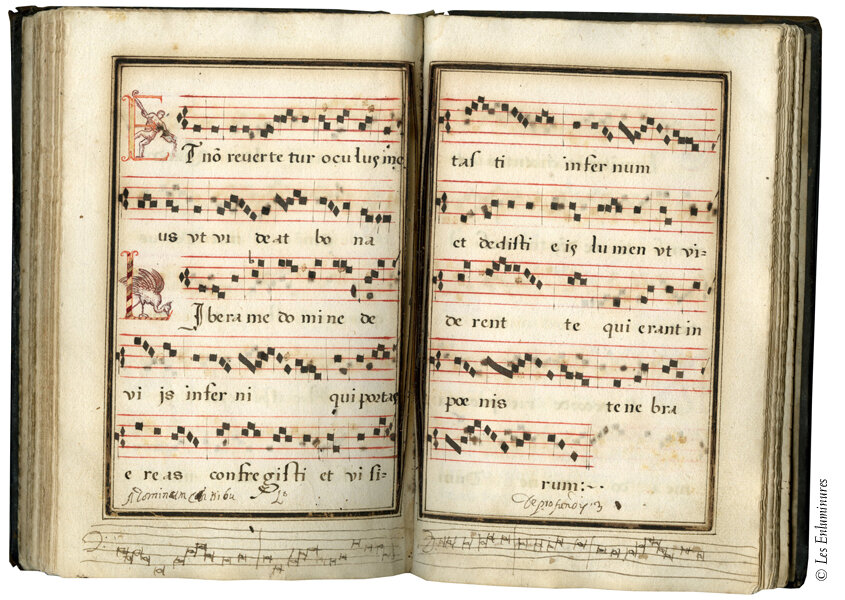 ET nō reverte tur oculus me
us vt vi deat bo na
LIbera me do mi ne de
vi js infer ni qui portas
e reas confregisti et vi si-
Ad Dominum
tas ti infer num
et dedisti eis lumen vt vi-
de rent te qui erant in
poe nis tene bra
rum:~
© Les Enluminures